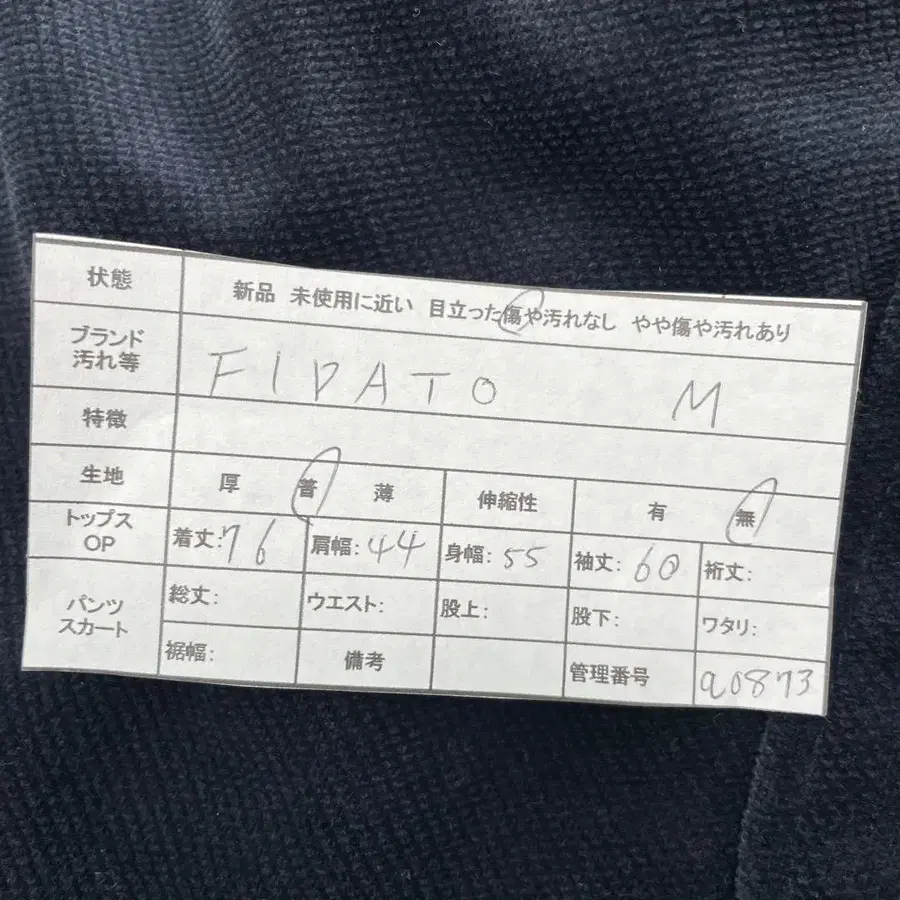 状態 新品 未使用に近い 目立った傷や汚れなし やや傷や汚れあり
ブランド
汚れ等 FIDATO M
特徴
生地 厚 普 薄 伸縮性 有 無
トップス
OP 着丈:76 肩幅:44 身幅:55 袖丈:60 裄丈:
パンツ
スカート 総丈: ウエスト: 股上: 股下: ワタリ:
裾幅: 備考 管理番号 a0873